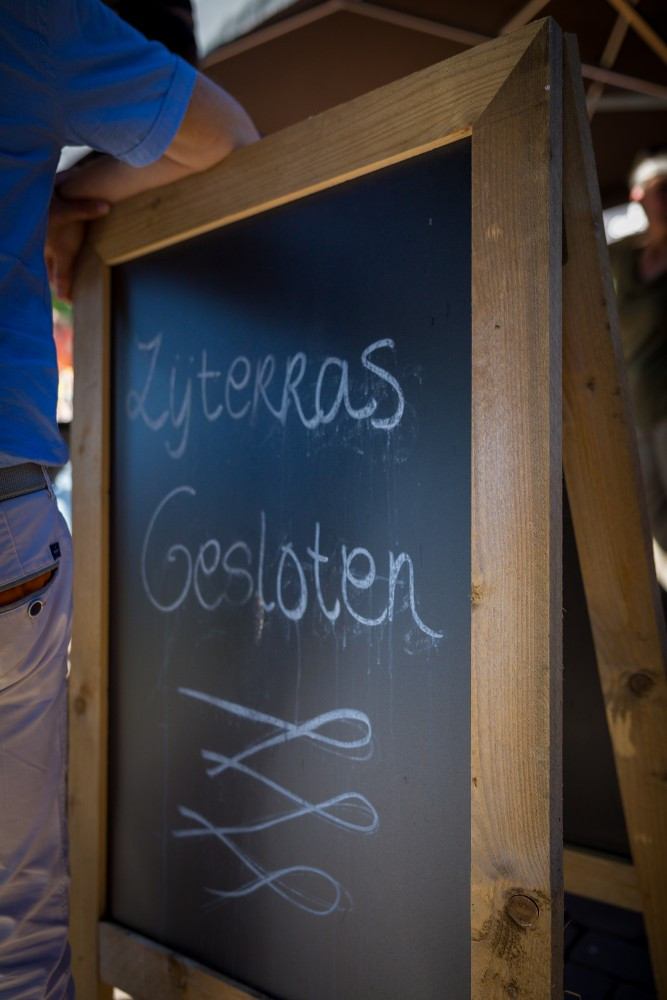 Zijterras
Gesloten